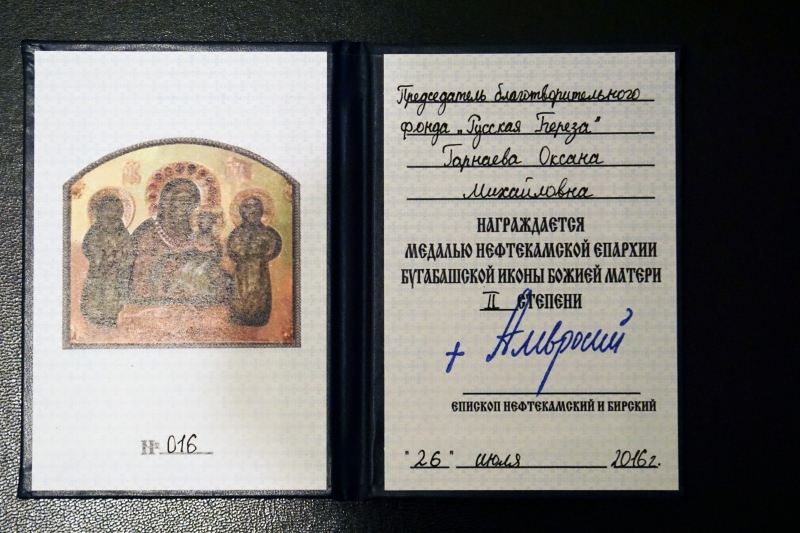 № 016
Председатель благотворительного
фонда „Русская Береза"
Гарнаева Оксана
Михайловна
НАГРАЖДАЕТСЯ
МЕДАЛЬЮ НЕФТЕКАМСКОЙ ЕПАРХИИ
БУГАБАШСКОЙ ИКОНЫ БОЖИЕЙ МАТЕРИ
II СТЕПЕНИ
+ Амвросий
ЕПИСКОП НЕФТЕКАМСКИЙ И БИРСКИЙ
"26" июля 2016 г.